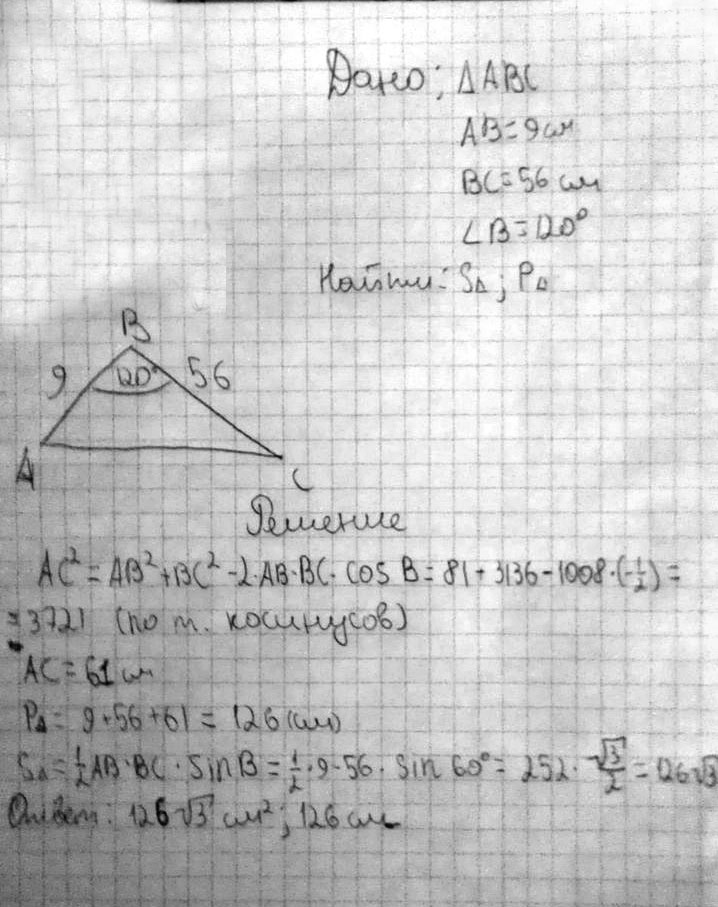 Дано: ΔABC
AB=9см
BC=56 см
∠B=120°
Найти: SΔ; PΔ
B
9 120° 56
A
C
Решение
AC²=AB²+BC²-2·AB·BC·cos B=81+3136-1008·(-1/2)=
=3721 (по т. косинусов)
AC=61см
PΔ=9+56+61=126(см)
SΔ=1/2AB·BC·SinB=1/2·9·56·sin 60°=252·√3/2=126√3
Ответ: 126√3 см²; 126 см